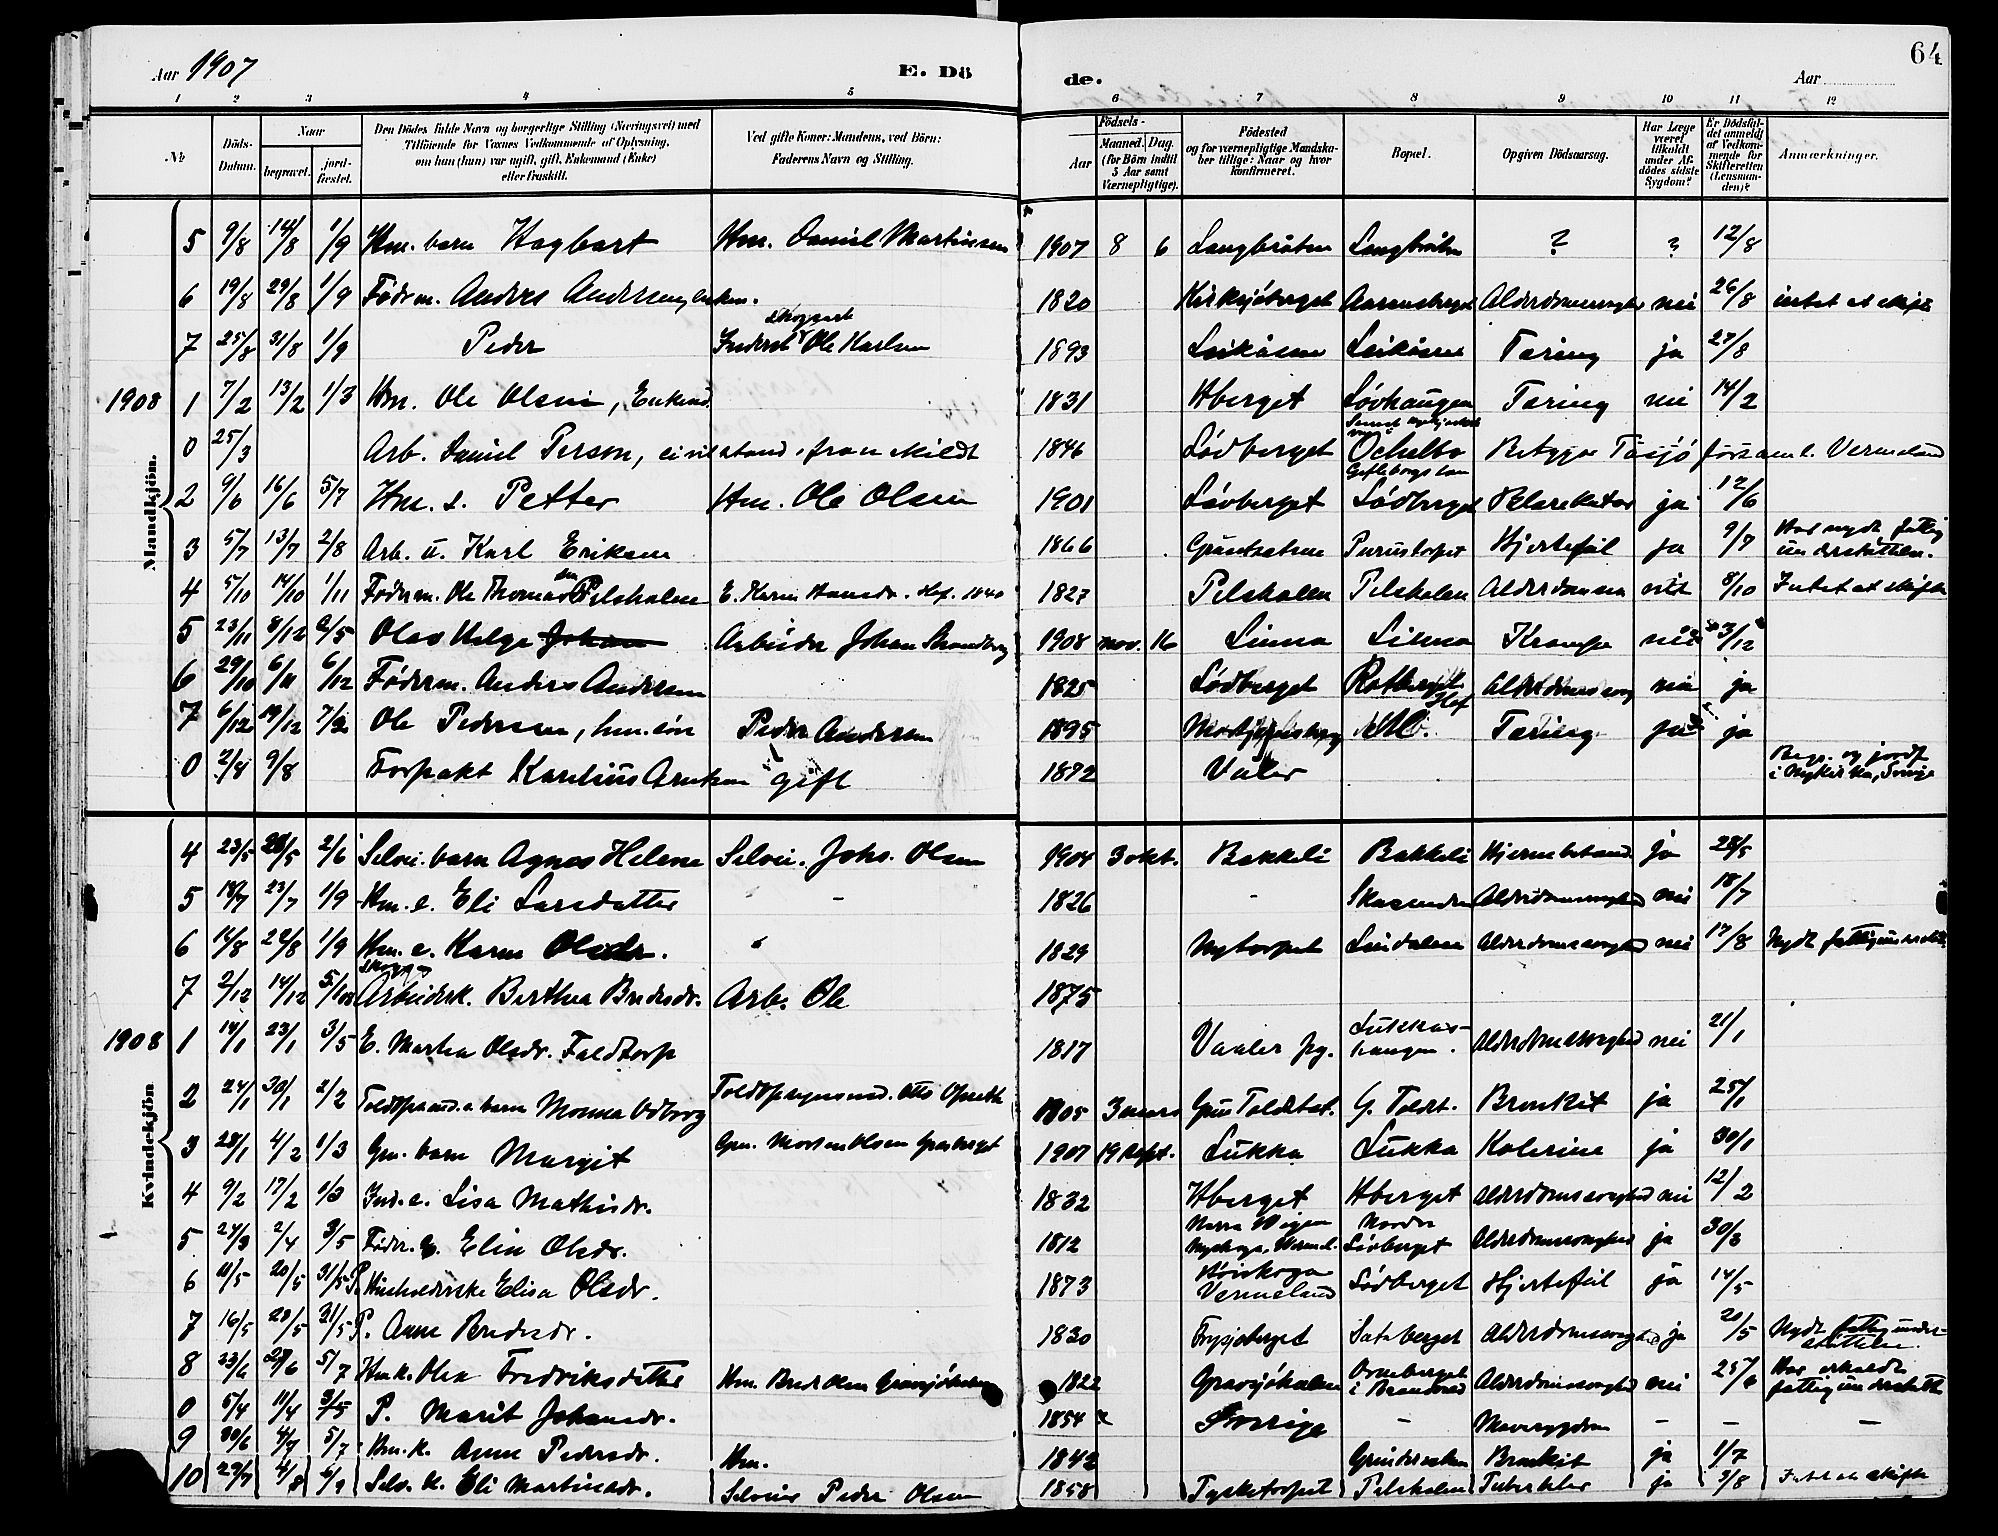 64
Aar 1907 E. Dö de. Aar
1 2 3 4 5 6 7 8 9 10 11 12
№ Döds-Datum. Naar begravet. jord-fæstet. Den Dödes fulde Navn og borgerlige Stilling (Næringsvei) med Tilföiende for Voxnes Vedkommende af Oplysning, om han (hun) var ugift, gift, Enkemand (Enke) eller fraskilt. Ved gifte Koner: Mandens, ved Börn: Faderens Navn og Stilling. Födsels- Aar Maaned. Dag. (for Börn indtil 5 Aar samt Værnepligtige). Födested og for værnepligtige Mandskaber tillige: Naar og hvor konfirmeret. Bopæl. Opgiven Dödsaarsag. Har Læge været tilkaldt under Afdödes sidste Sygdom? Er Dödsfaldet anmeldt af Vedkommende for Skifteretten (Lensmanden)? Anmærkninger.
Mandkjön.
5 9/8 14/8 1/9 Hm. barn Hagbart Hm. Daniel Martinsen 1907 8 6 Langbråten Langbråten ? ? 12/8
6 19/8 29/8 1/9 Föderm. Anders Andersen, enkem. 1820 Kirksjöberget Alderdomssvaghed nei 26/8 intet at skifte
7 25/8 31/8 1/9 Peder Inderst Skoggart Ole Karlsen 1893 Leikåsen Leikåsen Tæring ja 27/8
1908 1 7/2 13/2 1/3 Hm. Ole Olsen, Enkem. 1831 Hberget Lövhaugen Tæring nei 14/2
0 25/3 Arb. Daniel Person, civilstand, fraskildt 1846 Lödberget Ockelbo Gefleborgs lan
2 9/6 16/6 5/7 Hm. s. Petter Hm. Ole Olsen 1901 Lövberget Lödberget ja 12/6
3 5/7 13/7 2/8 Arb. u. Karl Eriksen 1866 Grüntsetren Purustorpet Hjertefeil ja 9/7 Har nydt fattigunderstöttelse.
4 5/10 14/10 1/11 Föderm. Ole Thomassen Pelshalen E. Karin Hansdr. 1840 1827 Pelshalen Pelshalen Alderdommen nei 8/10 Intet at skifte
5 23/11 8/12 2/5 Olav Helge Johan Arbeider Johan Strandberg 1908 nov. 16 Linna Linna Krampe nei 3/12
6 29/10 6/11 6/12 Föderm. Anders Andersen 1825 Lödberget Rotberget Hof Alderdomssvag nei ja
7 6/12 14/12 7/2 Ole Pedersen, hm. sön Peder Andersen 1895 Mo. Tæring ja ja
0 2/8 9/8 Forpakt. Karelius Arntsen gift 1872 Valer Begr. og jordf. i Nykirka, Sverige
Kvindekjön
4 23/5 28/5 2/6 Selvei. barn Agnes Helene Selvei. Johs. Olsen 1904 3 okt. Bakkeli Bakkeli Hjernebetænd. ja 28/5
5 18/7 23/7 1/9 Hm. e. Eli Larsdatter - 1826 - Skasenden Alderdomssvaghed nei 18/7
6 14/8 22/8 1/9 Hm. e. Karen Olsdr. 1829 Nytorpet Lindalen Alderdomssvaghed nei 17/8 Nydt fattigunderstöt.
7 9/12 14/12 5/1 08 Skogg. Arbeidsk. Berthea Bredesdr. Arb. Ole 1875
1908 1 14/1 23/1 3/5 E. Martea Olsdr. Faldtorp 1817 Vaaler pg. Lukkashaugen. Alderdomssvaghed nei 21/1
2 24/1 30/1 2/2 barn Monna Odborg Toldopsynsmd. Otto 1905 3 mars Grue Toldstat. G. Toldst. Bronkit ja 25/1
3 28/1 4/2 1/3 Gm. barn Margit Gm. Morten Olsen Grasberget 1907 19 sept. Lukka Lukka Kolerine ja 30/1
4 9/2 17/2 1/3 Ind. e. Lisa Mathisdr. 1832 Hberget Hberget Alderdomssvaghed nei 12/2
5 27/3 2/4 3/5 Föder. E. Elin Olsdr. 1812 Norra Wigen Nyskoga, Verml. Nordre Lövberget Alderdomssvaghed ja 30/3
6 11/5 20/5 31/5 P. Husholderske Elisa Olsdr. 1873 Vermeland Lödberget Hjertefeil ja 14/5
7 16/5 20/5 31/5 P. Anne Bredesdr. 1830 Frysjeberget Sataberget Alderdomssvaghed ja 20/5 Nydt fattigunderstöttelse.
8 23/6 28/6 5/7 Hmk. Olea Fredriksdatter Hm. Bredi Olsen Gravsjöhalen 1822 Gravsjöhalen Orneberget i Brandvold Alderdomssvaghed nei 25/6 Har erholdt fattigunderstöt.
0 5/4 11/4 3/5 P. Marit Johansdr. 1854 Sverige - Mavesygdom - - -
9 30/6 4/7 5/7 Hm. k. Anne Pedersdr. Hm. 1842 Gründersæten Bronkit ja 1/7
10 29/7 4/8 6/9 Selv. k. Eli Martinsdr. Selveier Peder Olsen 1858 Tysketorpet Pelshalen Tuberkler ja 3/8 Intet at skifte